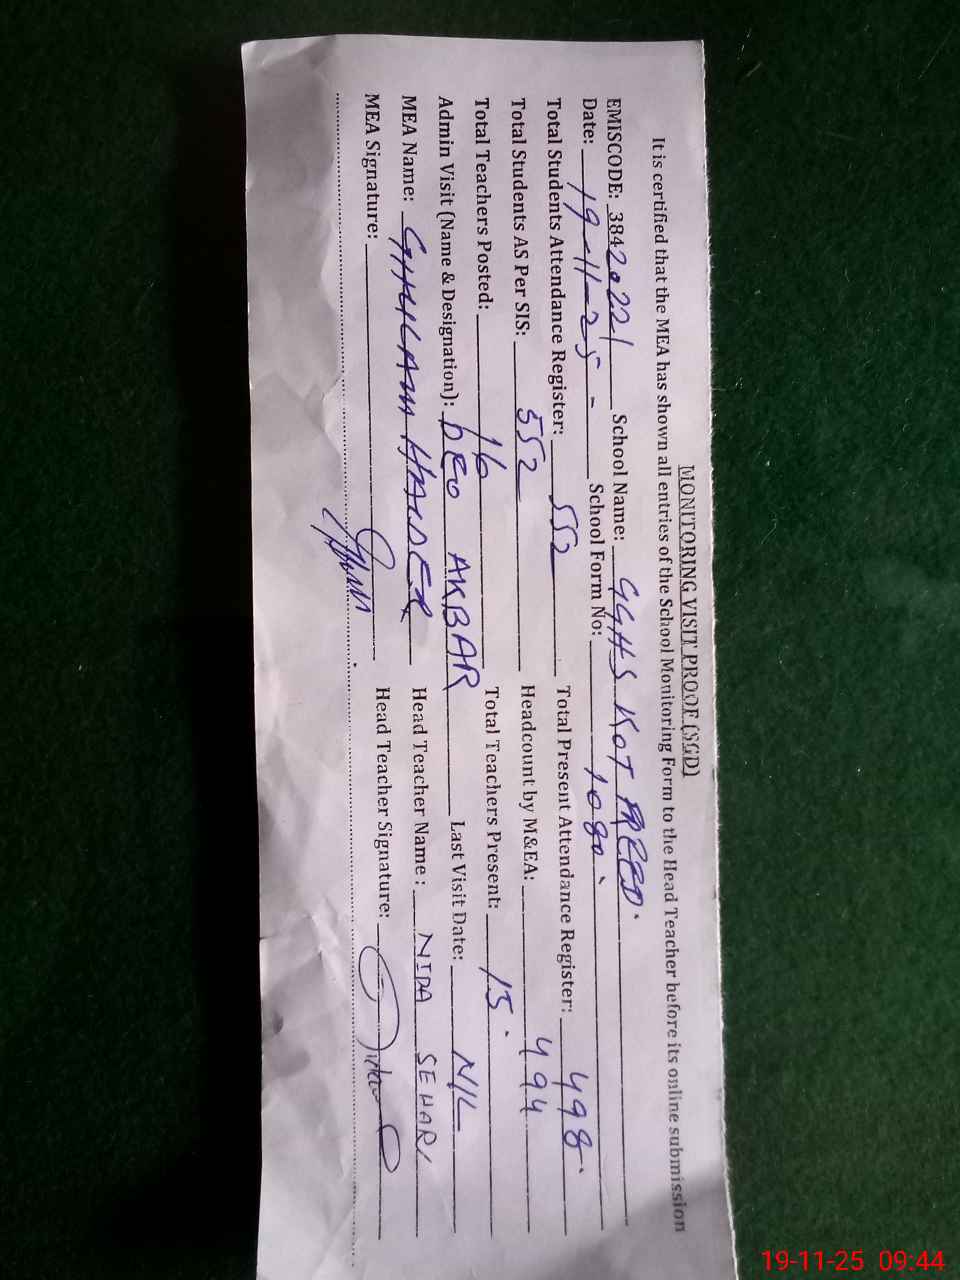 MONITORING VISIT PROOF (SGD)
It is certified that the MEA has shown all entries of the School Monitoring Form to the Head Teacher before its online submission
EMISCODE: 38420221 School Name: GGHS KOT FAREED.
Date: 19-11-25 - School Form No: 1080
Total Students Attendance Register: 552 Total Present Attendance Register: 498.
Total Students AS Per SIS: 552 Headcount by M&EA: 494
Total Teachers Posted: 16 Total Teachers Present: 15.
Admin Visit (Name & Designation): DEO AKBAR Last Visit Date: NIL
MEA Name: GHULAM HAIDER Head Teacher Name : NIDA SEHAR
MEA Signature: Head Teacher Signature:
19-11-25 09:44